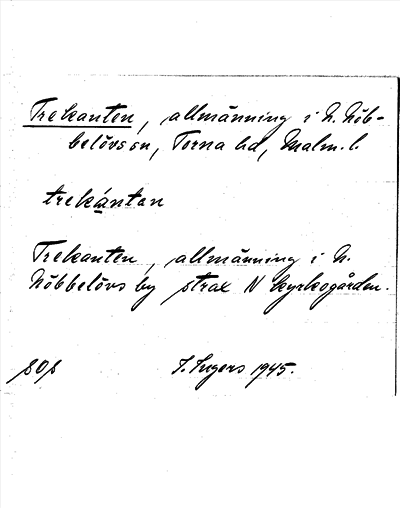 Trekanten, allmänning i N. Nöb-
belövs sn, Torna hd, Malm. l.
trekánten
Trekanten, allmänning i N.
Nöbbelövs by strax N kyrkogården.
I. Ingers 1945.